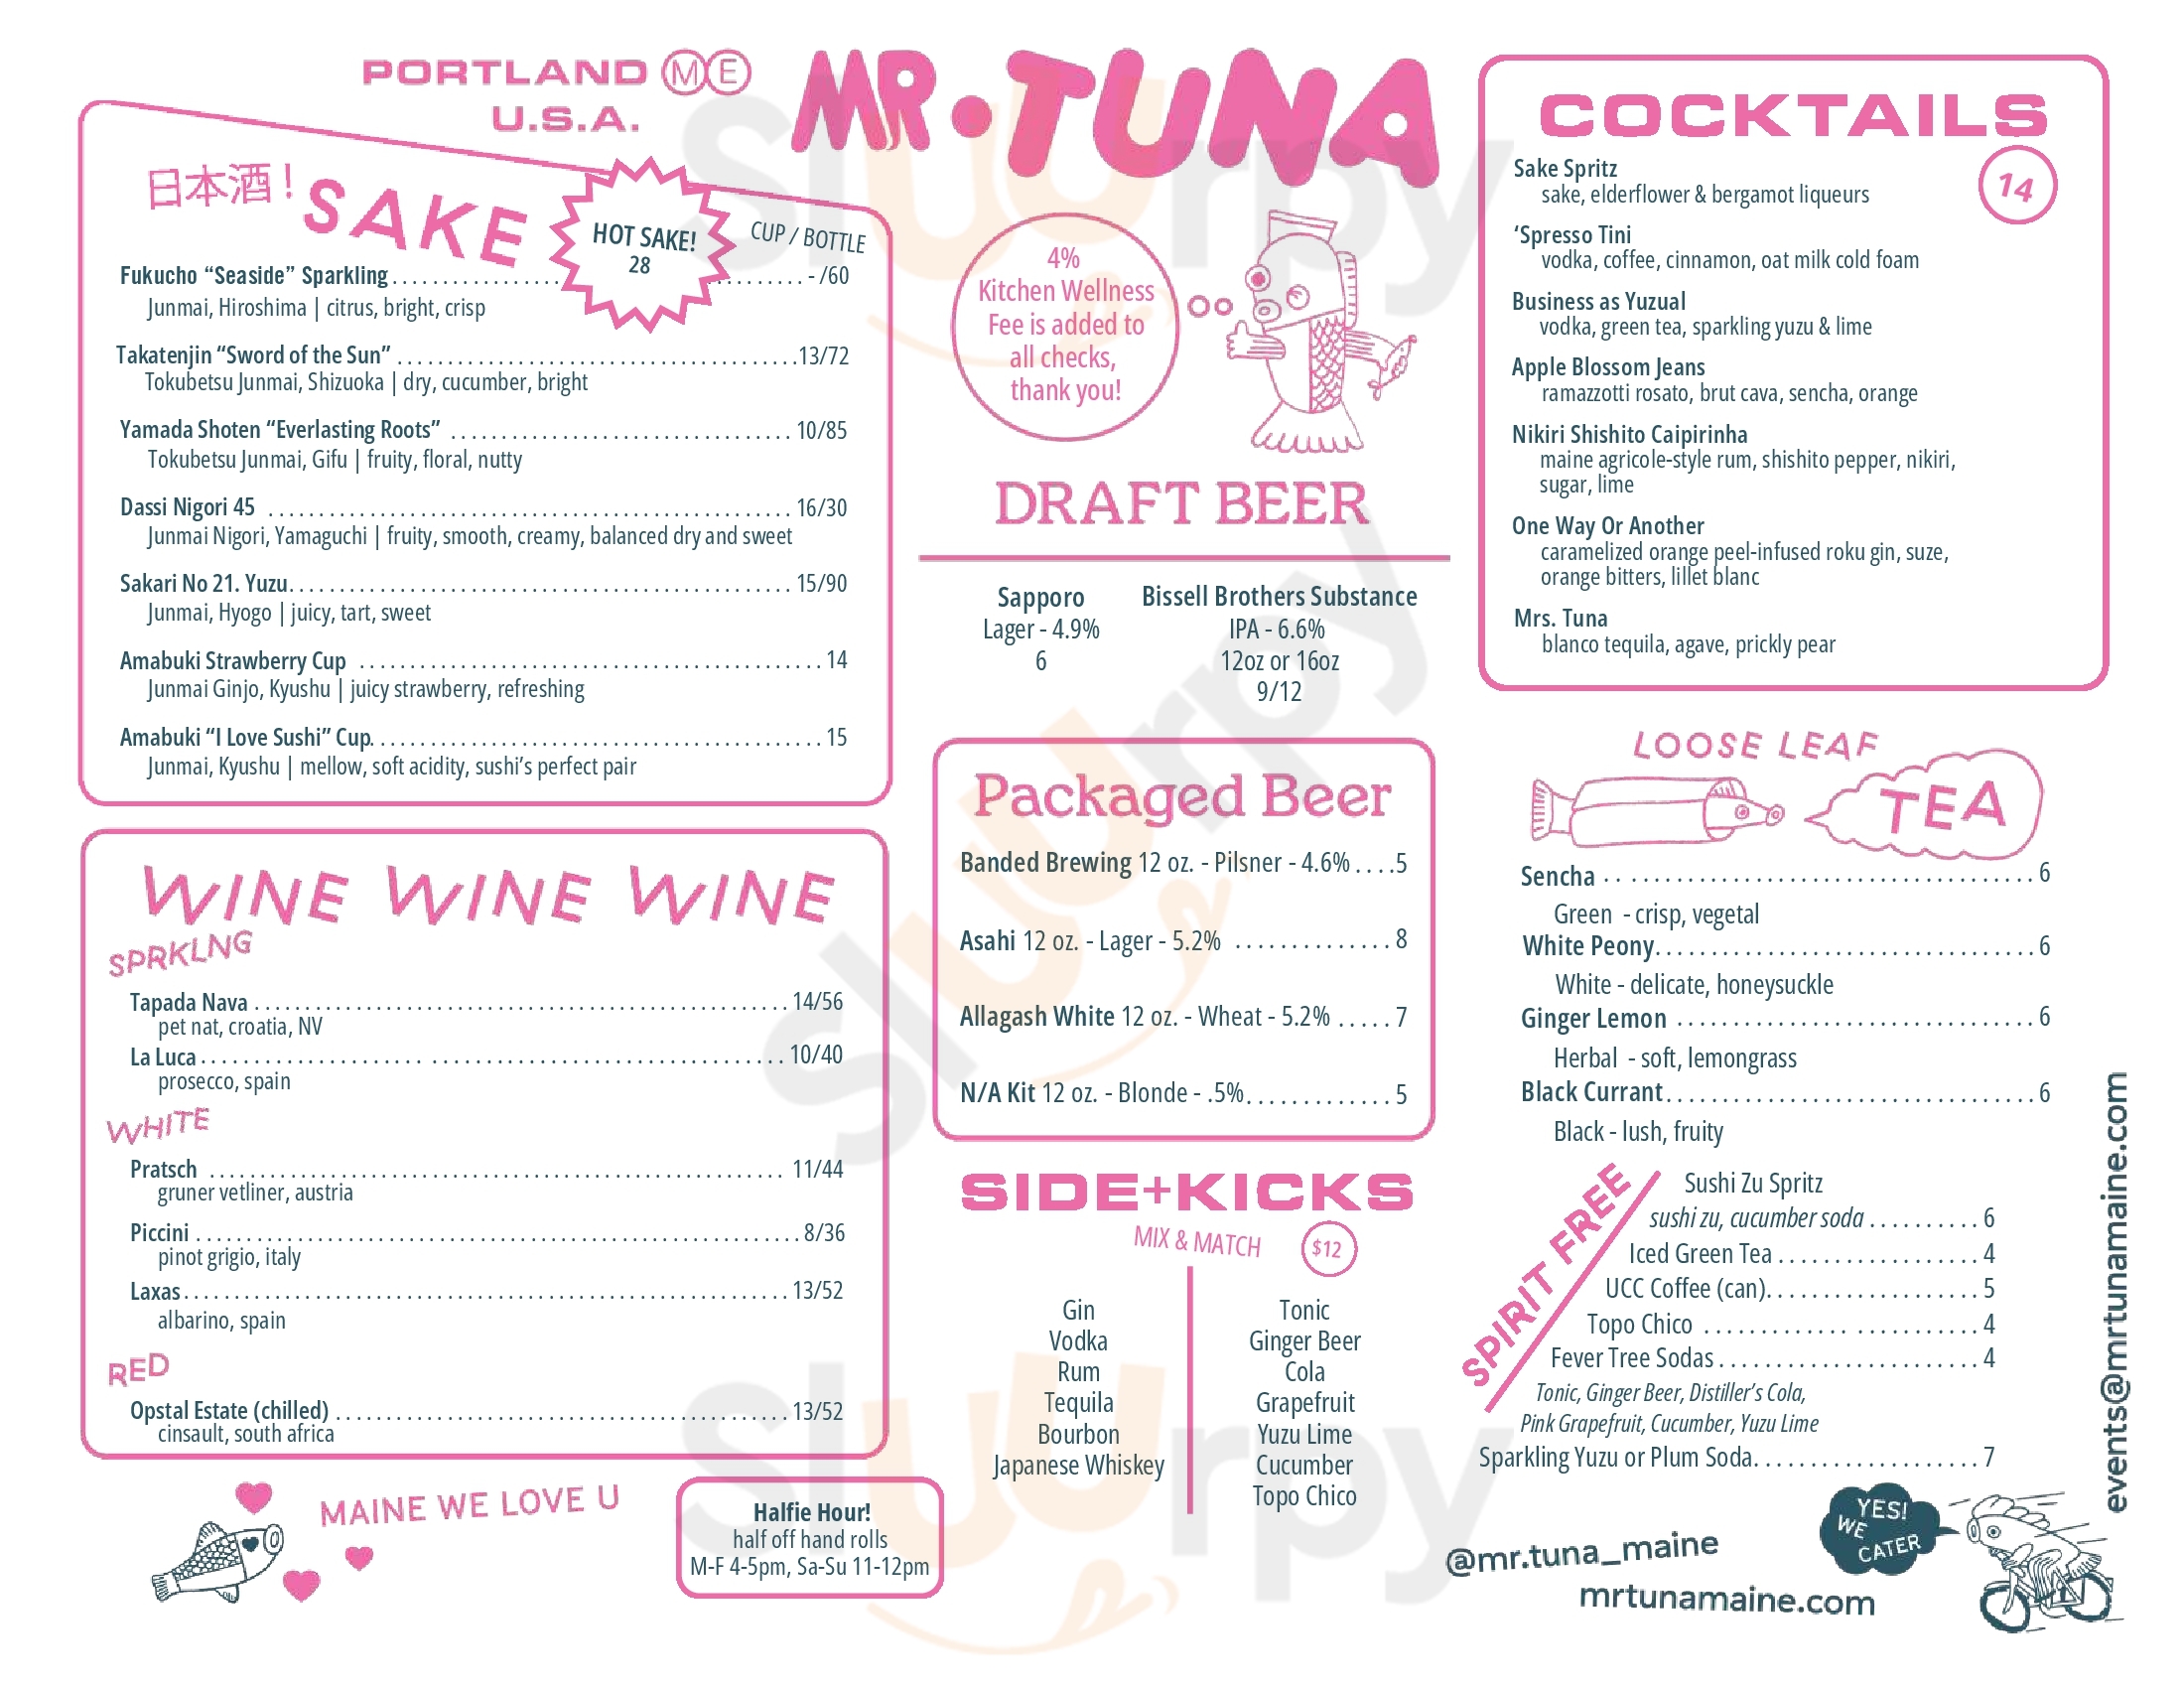 PORTLAND ME
U.S.A.
MR. TUNA
日本酒! SAKE
HOT SAKE!
28
CUP / BOTTLE
Fukucho “Seaside” Sparkling - /60
Junmai, Hiroshima | citrus, bright, crisp
Takatenjin “Sword of the Sun” 13/72
Tokubetsu Junmai, Shizuoka | dry, cucumber, bright
Yamada Shoten “Everlasting Roots” 10/85
Tokubetsu Junmai, Gifu | fruity, floral, nutty
Dassi Nigori 45 16/30
Junmai Nigori, Yamaguchi | fruity, smooth, creamy, balanced dry and sweet
Sakari No 21. Yuzu 15/90
Junmai, Hyogo | juicy, tart, sweet
Amabuki Strawberry Cup 14
Junmai Ginjo, Kyushu | juicy strawberry, refreshing
Amabuki “I Love Sushi” Cup 15
Junmai, Kyushu | mellow, soft acidity, sushi’s perfect pair
WINE WINE WINE
SPRKLNG
Tapada Nava 14/56
pet nat, croatia, NV
La Luca 10/40
prosecco, spain
WHITE
Pratsch 11/44
gruner vetliner, austria
Piccini 8/36
pinot grigio, italy
Laxas 13/52
albarino, spain
RED
Opstal Estate (chilled) 13/52
cinsault, south africa
MAINE WE LOVE U
Halfie Hour!
half off hand rolls
M-F 4-5pm, Sa-Su 11-12pm
4%
Kitchen Wellness
Fee is added to
all checks,
thank you!
DRAFT BEER
Sapporo
Lager - 4.9%
6
Bissell Brothers Substance
IPA - 6.6%
12oz or 16oz
9/12
Packaged Beer
Banded Brewing 12 oz. - Pilsner - 4.6% 5
Asahi 12 oz. - Lager - 5.2% 8
Allagash White 12 oz. - Wheat - 5.2% 7
N/A Kit 12 oz. - Blonde - .5% 5
SIDE+KICKS
MIX & MATCH $12
Gin
Vodka
Rum
Tequila
Bourbon
Japanese Whiskey
Tonic
Ginger Beer
Cola
Grapefruit
Yuzu Lime
Cucumber
Topo Chico
COCKTAILS
14
Sake Spritz
sake, elderflower & bergamot liqueurs
‘Spresso Tini
vodka, coffee, cinnamon, oat milk cold foam
Business as Yuzual
vodka, green tea, sparkling yuzu & lime
Apple Blossom Jeans
ramazzotti rosato, brut cava, sencha, orange
Nikiri Shishito Caipirinha
maine agricole-style rum, shishito pepper, nikiri,
sugar, lime
One Way Or Another
caramelized orange peel-infused roku gin, suze,
orange bitters, lillet blanc
Mrs. Tuna
blanco tequila, agave, prickly pear
LOOSE LEAF
TEA
Sencha 6
Green - crisp, vegetal
White Peony 6
White - delicate, honeysuckle
Ginger Lemon 6
Herbal - soft, lemongrass
Black Currant 6
Black - lush, fruity
SPIRIT FREE
Sushi Zu Spritz
sushi zu, cucumber soda 6
Iced Green Tea 4
UCC Coffee (can) 5
Topo Chico 4
Fever Tree Sodas 4
Tonic, Ginger Beer, Distiller’s Cola,
Pink Grapefruit, Cucumber, Yuzu Lime
Sparkling Yuzu or Plum Soda 7
YES!
WE
CATER
@mr.tuna_maine
mrtunamaine.com
events@mrtunamaine.com
sluurpy
sluurpy
sluurpy